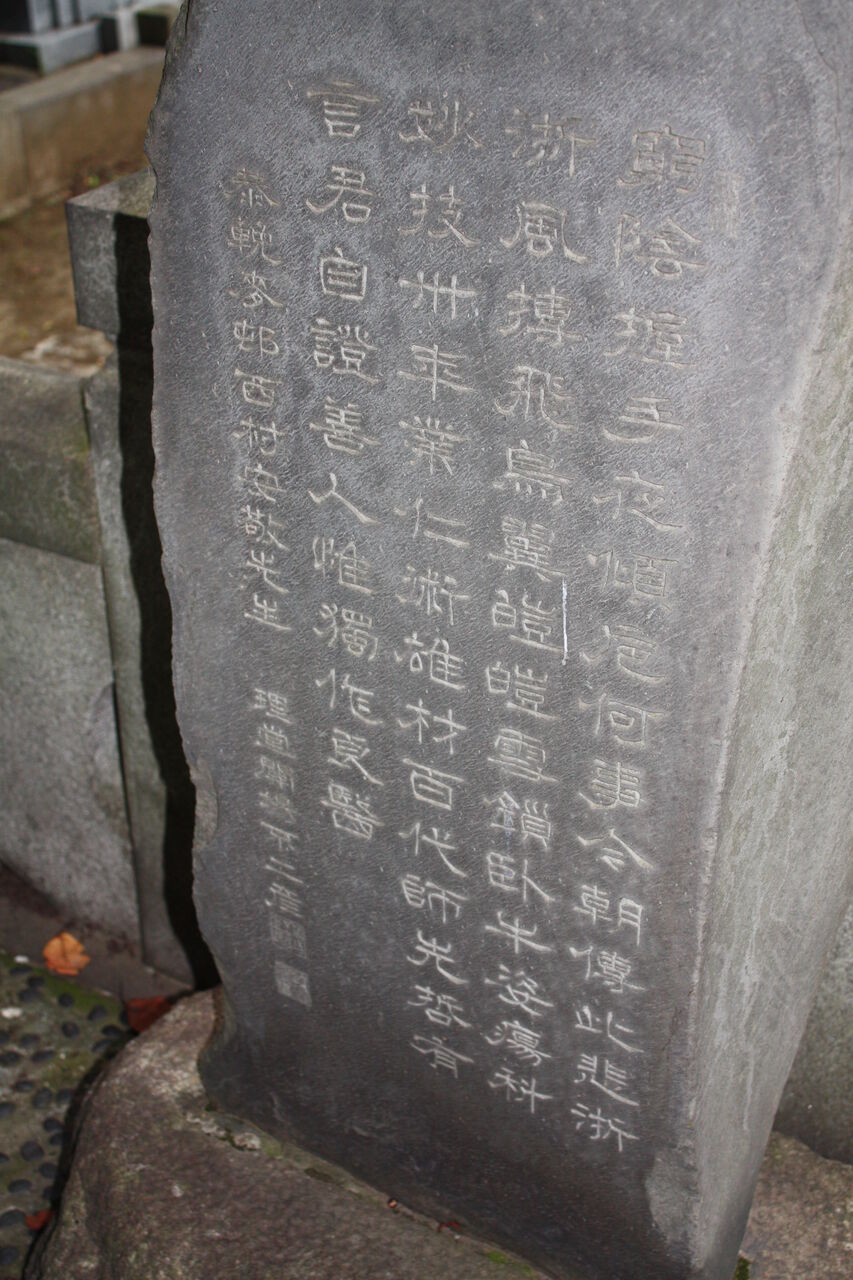 窮陰握手夜傾卮何事今朝傳此悲淅
淅風搏飛鳥翼皚皚雪鎖臥牛姿瘍科
妙技卅年業仁術雄材百代師先哲有
言君自證善人惟獨作良醫
恭輓麥邨西村安敬先生 理堂関場不二彦